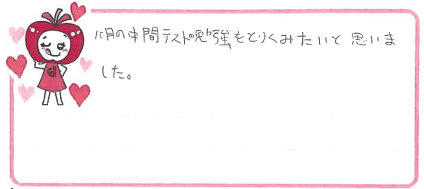 10月の中間テストの勉強もとりくみたいと思いま
した。